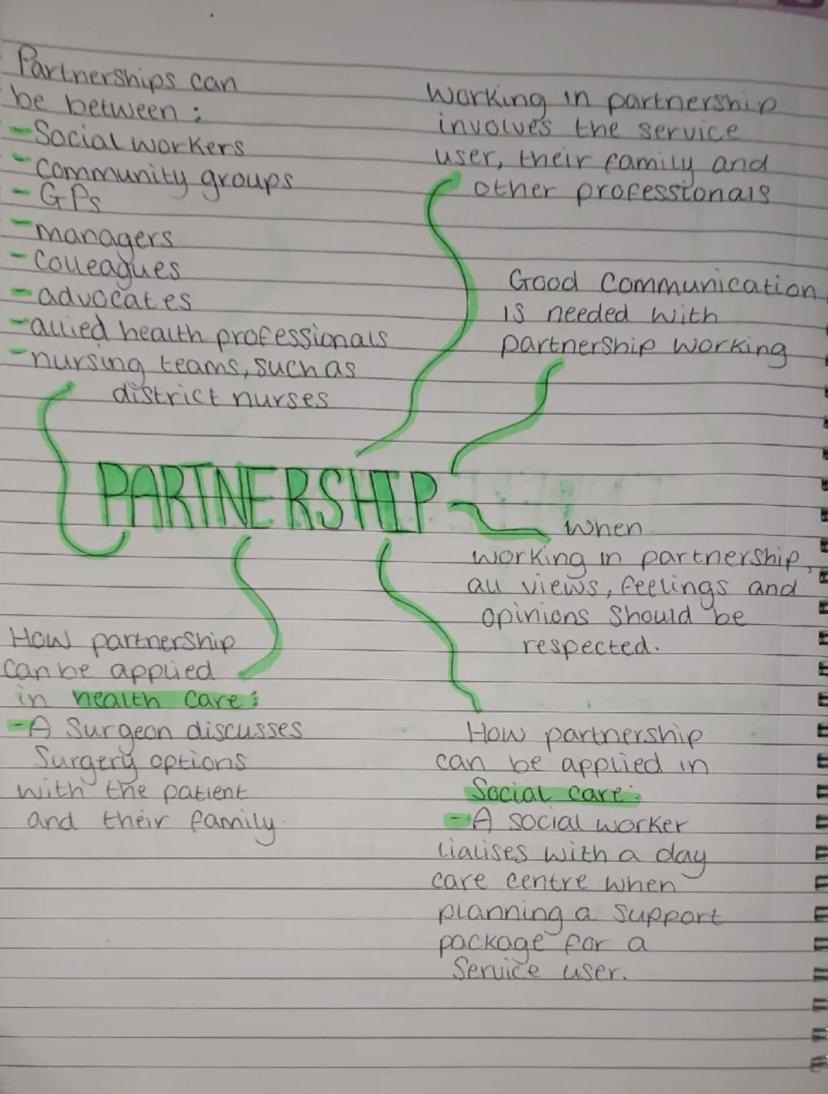 Partnerships can
be between:
- Social workers
- community groups
- GPs
- managers
- Colleagues
- advocates
- allied health professionals
- nursing teams, such as
district nurses
Working in partnership
involves the service
user, their family and
other professionals
Good communication
is needed with
partnership working
PARTNERSHIP
When
working in partnership,
all views, feelings and
opinions should be
respected.
How partnership
can be applied
in health care:
- A Surgeon discusses
Surgery options
with the patient
and their family.
How partnership
can be applied in
Social care:
- A social worker
liaises with a day
care centre when
planning a support
package for a
Service user.